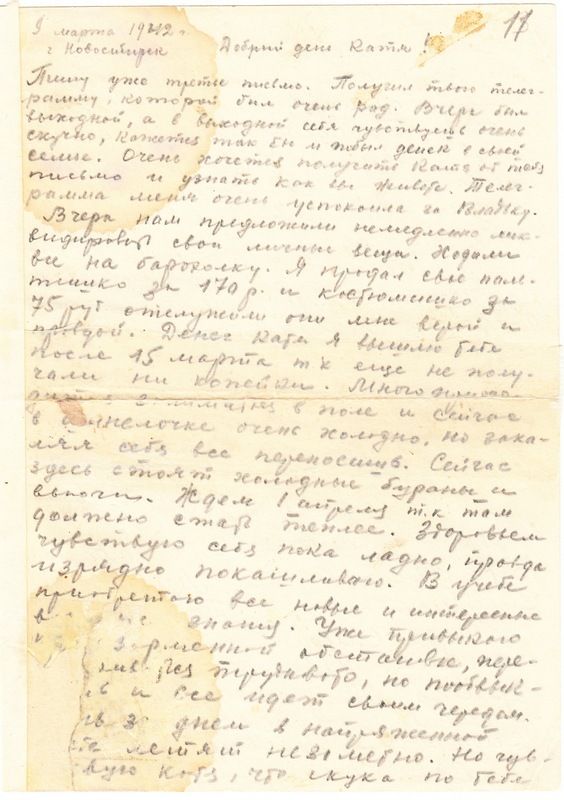 9 марта 1942 г. 11
г Новосибирск Добрый день Катя!
Пишу уже третье письмо. Получил твою телег-
рамму, которой был очень рад. Вчера был
выходной, а в выходной себя чувствуешь очень
скучно, кажется так бы и побыл денек в своей
семье. Очень хочется получить Катя от тебя
письмо и узнать как вы живете. Телег-
рамма меня очень успокоила за Владьку.
Вчера нам предложили немедленно лик-
видировать свои личные вещи. Ходили
все на барахолку. Я продал свое паль-
тишко за 170 р. и костюмишко за
75 руб отслужили они мне верой и
правдой. Денег Катя я вышлю тебе
после 15 марта т к еще не полу-
чали ни копейки. Много
в поле и сейчас
в шинелочке очень холодно, но зака-
ляя себя все переносишь. Сейчас
здесь стоят холодные бураны и
вьюги. Ждем 1 апреля т.к там
должно стать теплее. Здоровьем
чувствую себя пока ладно, правда
изрядно покашливаю. В учебе
приобретаю все новые и интересные
знания. Уже привыкаю
обстановке, пере-
трудновато, но пообвык-
и все идет своим чередом.
днем в напряженной
летят незаметно. Но чув-
ствую Катя, что скука по тебе